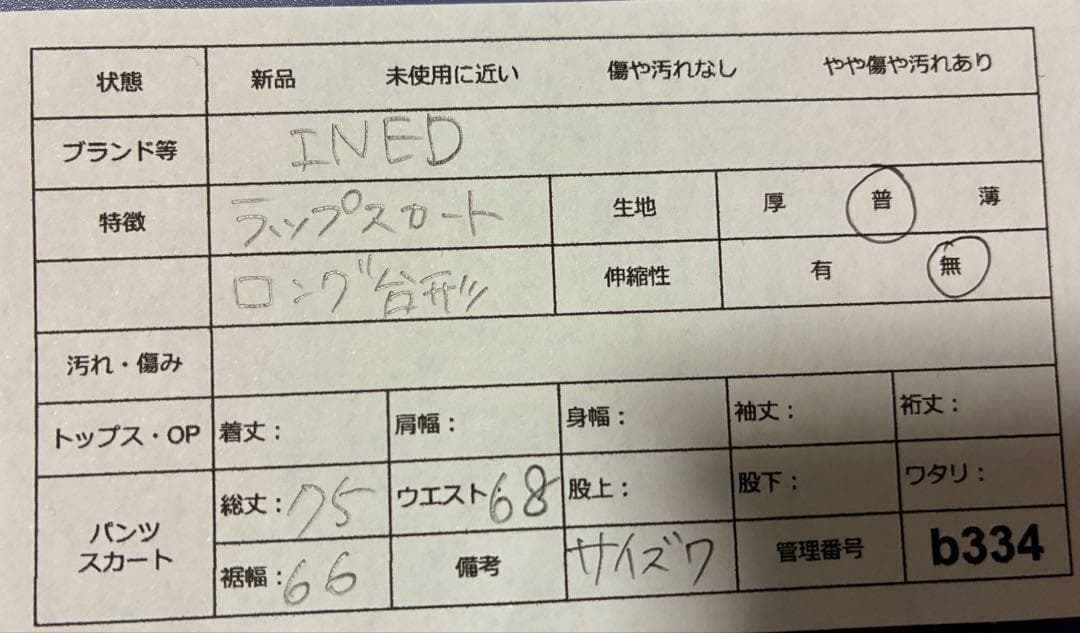 状態 新品 未使用に近い 傷や汚れなし やや傷や汚れあり
ブランド等 INED
特徴 ラップスカート 生地 厚 普 薄
ロング台形 伸縮性 有 無
汚れ・傷み
トップス・OP 着丈： 肩幅： 身幅： 袖丈： 裄丈：
パンツ スカート 総丈：75 ウエスト：68 股上： 股下： ワタリ：
裾幅：66 備考 サイズ7 管理番号 b334